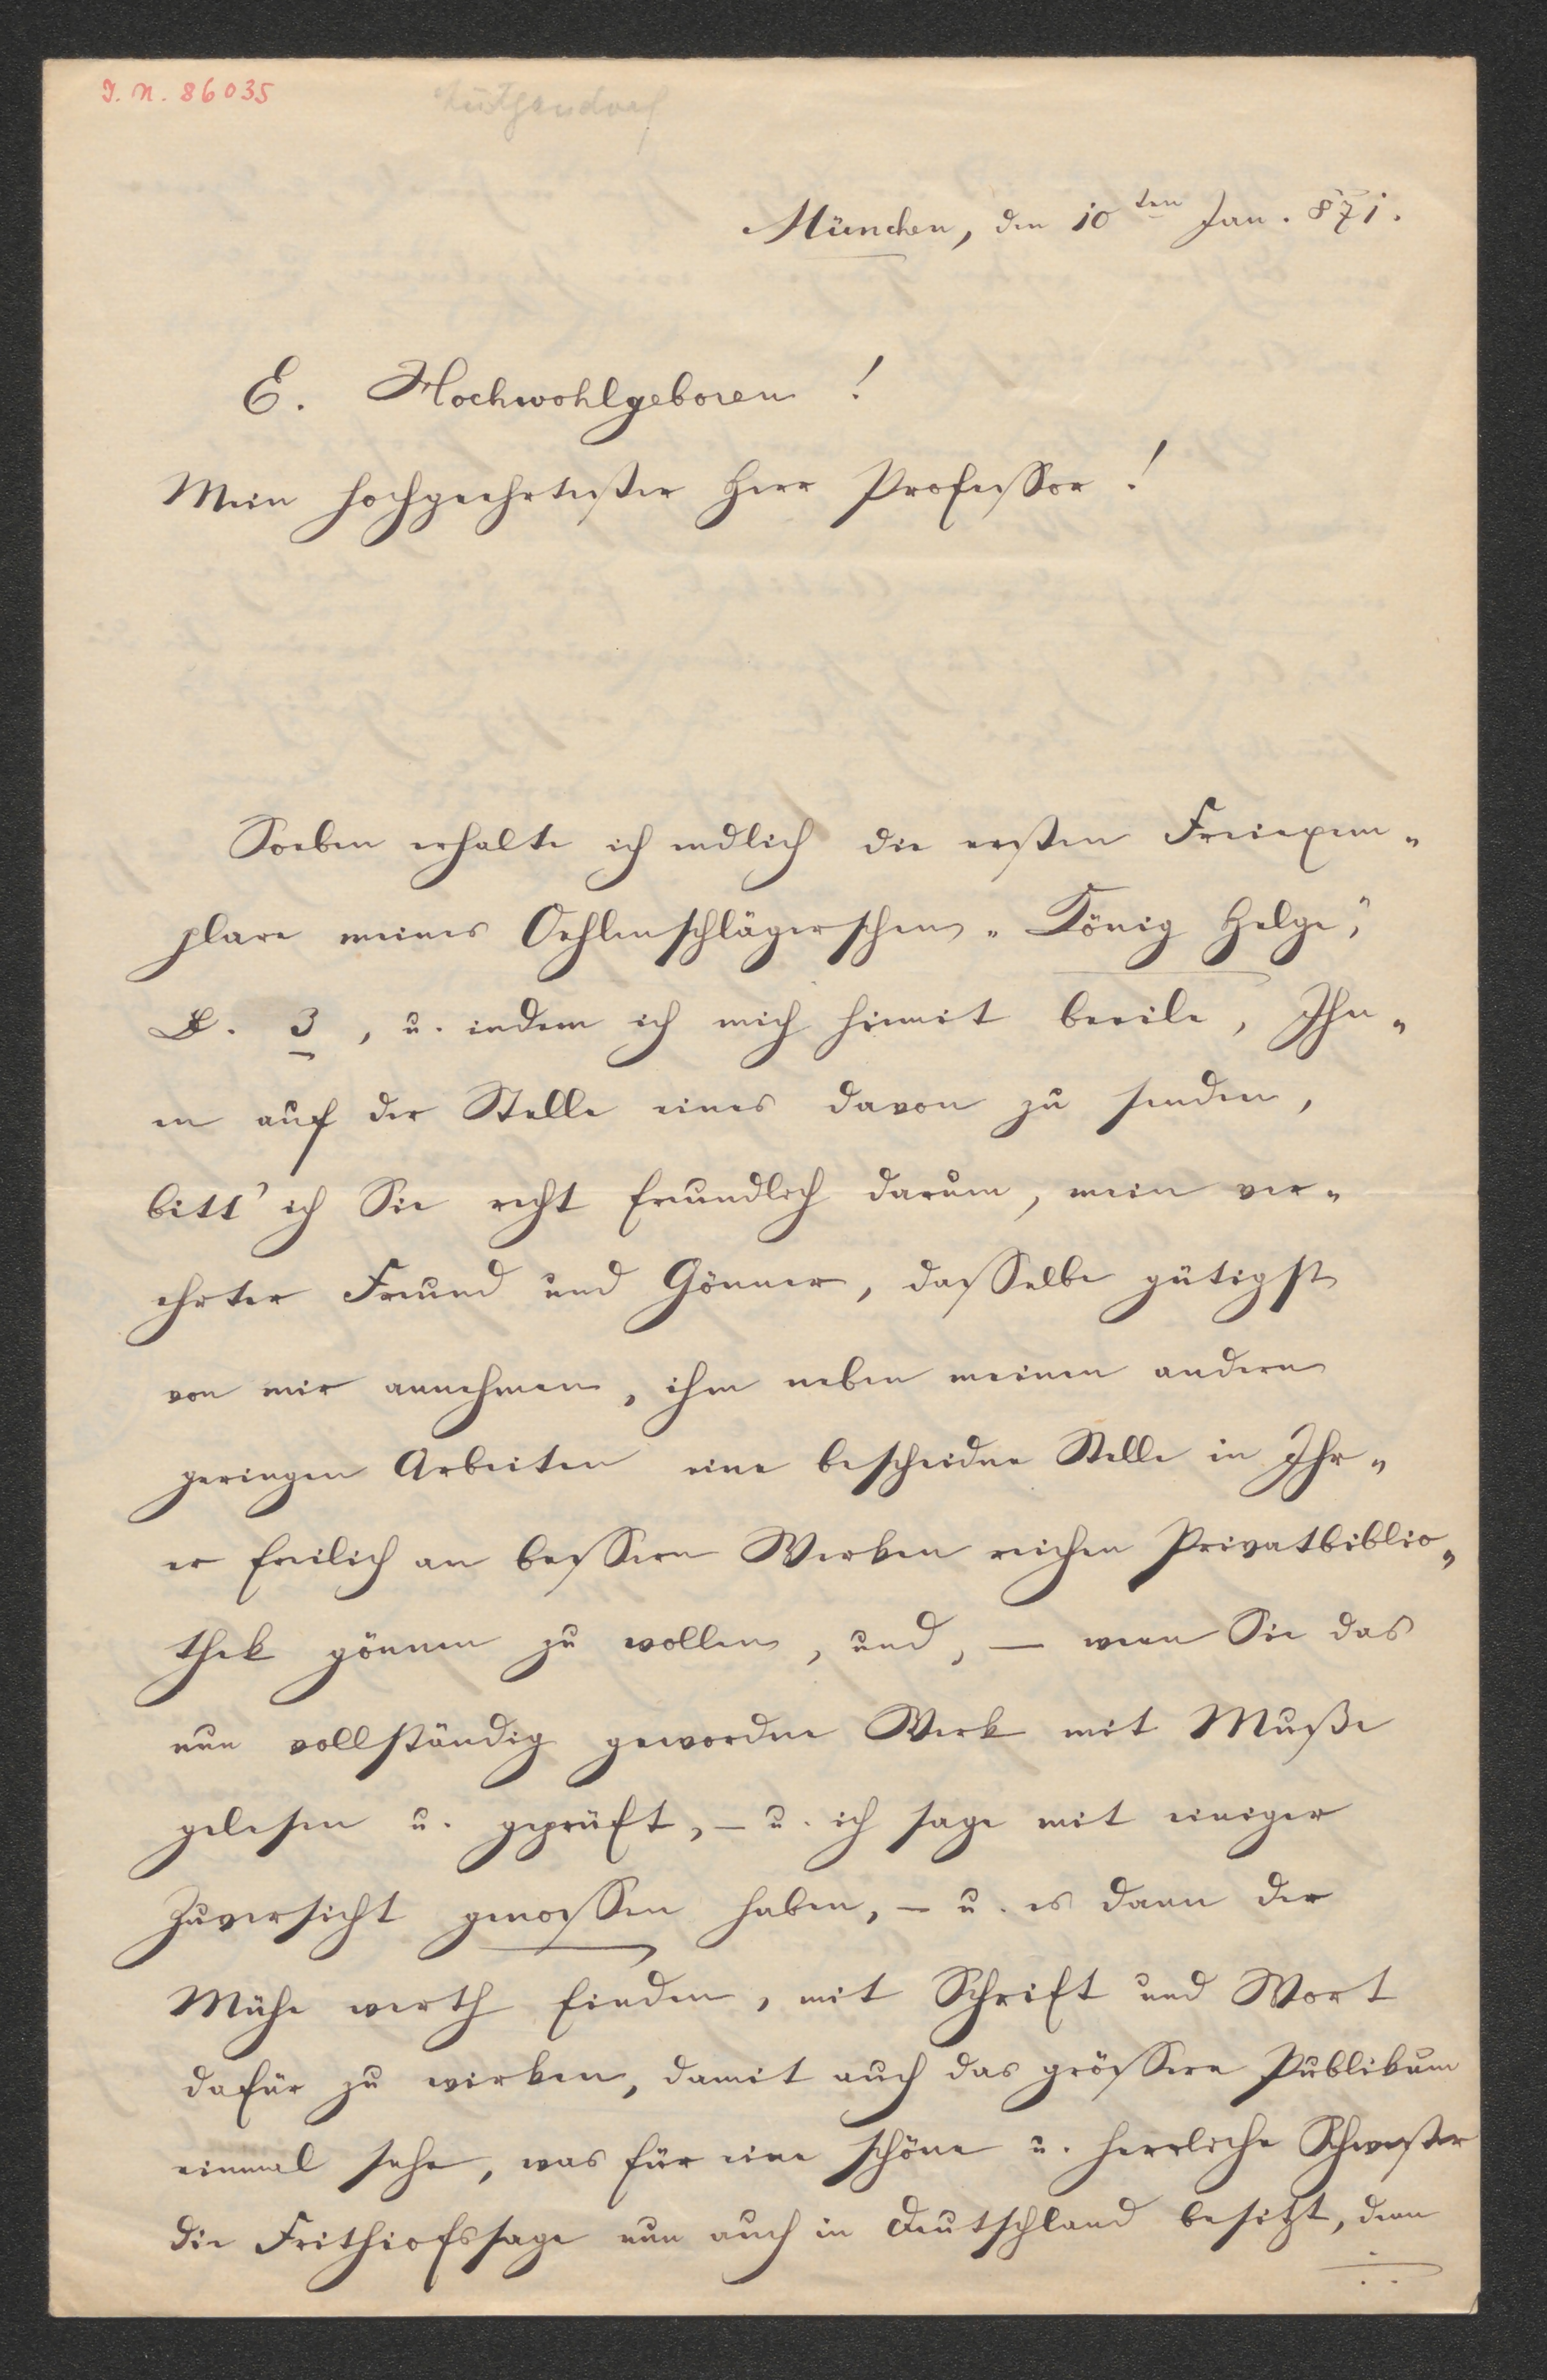 I. N. 86035
München, den 10ten Jan. 871.
E. Hochwohlgeboren!
Mein hochgeehrtester Herr Professor!
Soeben erhalte ich endlich die ersten Freiexem„
plare meines Oehlenschlägerschen „König Helge,"
B. 3, u. indem ich mich hiemit beeile, Ihn„
en auf der Stelle eines davon zu senden,
bitt' ich Sie recht freundlich darum, mein ver„
ehrter Freund und Gönner, dasselbe gütigst
von mir annehmen, ihm neben meinen andern
geringen Arbeiten eine bescheidne Stelle in Ihr„
er freilich an bessern Werken reichen Privatbiblio„
thek gönnen zu wollen, und, — wenn Sie das
nun vollständig gewordne Werk mit Muße
gelesen u. geprüft, – u. ich sage mit einiger
Zuversicht genossen haben, – u. es dann der
Mühe werth finden, mit Schrift und Wort
dafür zu wirken, damit auch das grössere Publikum
einmal sehe, was für eine schöne u. herrliche Schwester
die Frithiofssage nun auch in Deutschland besitzt, denn